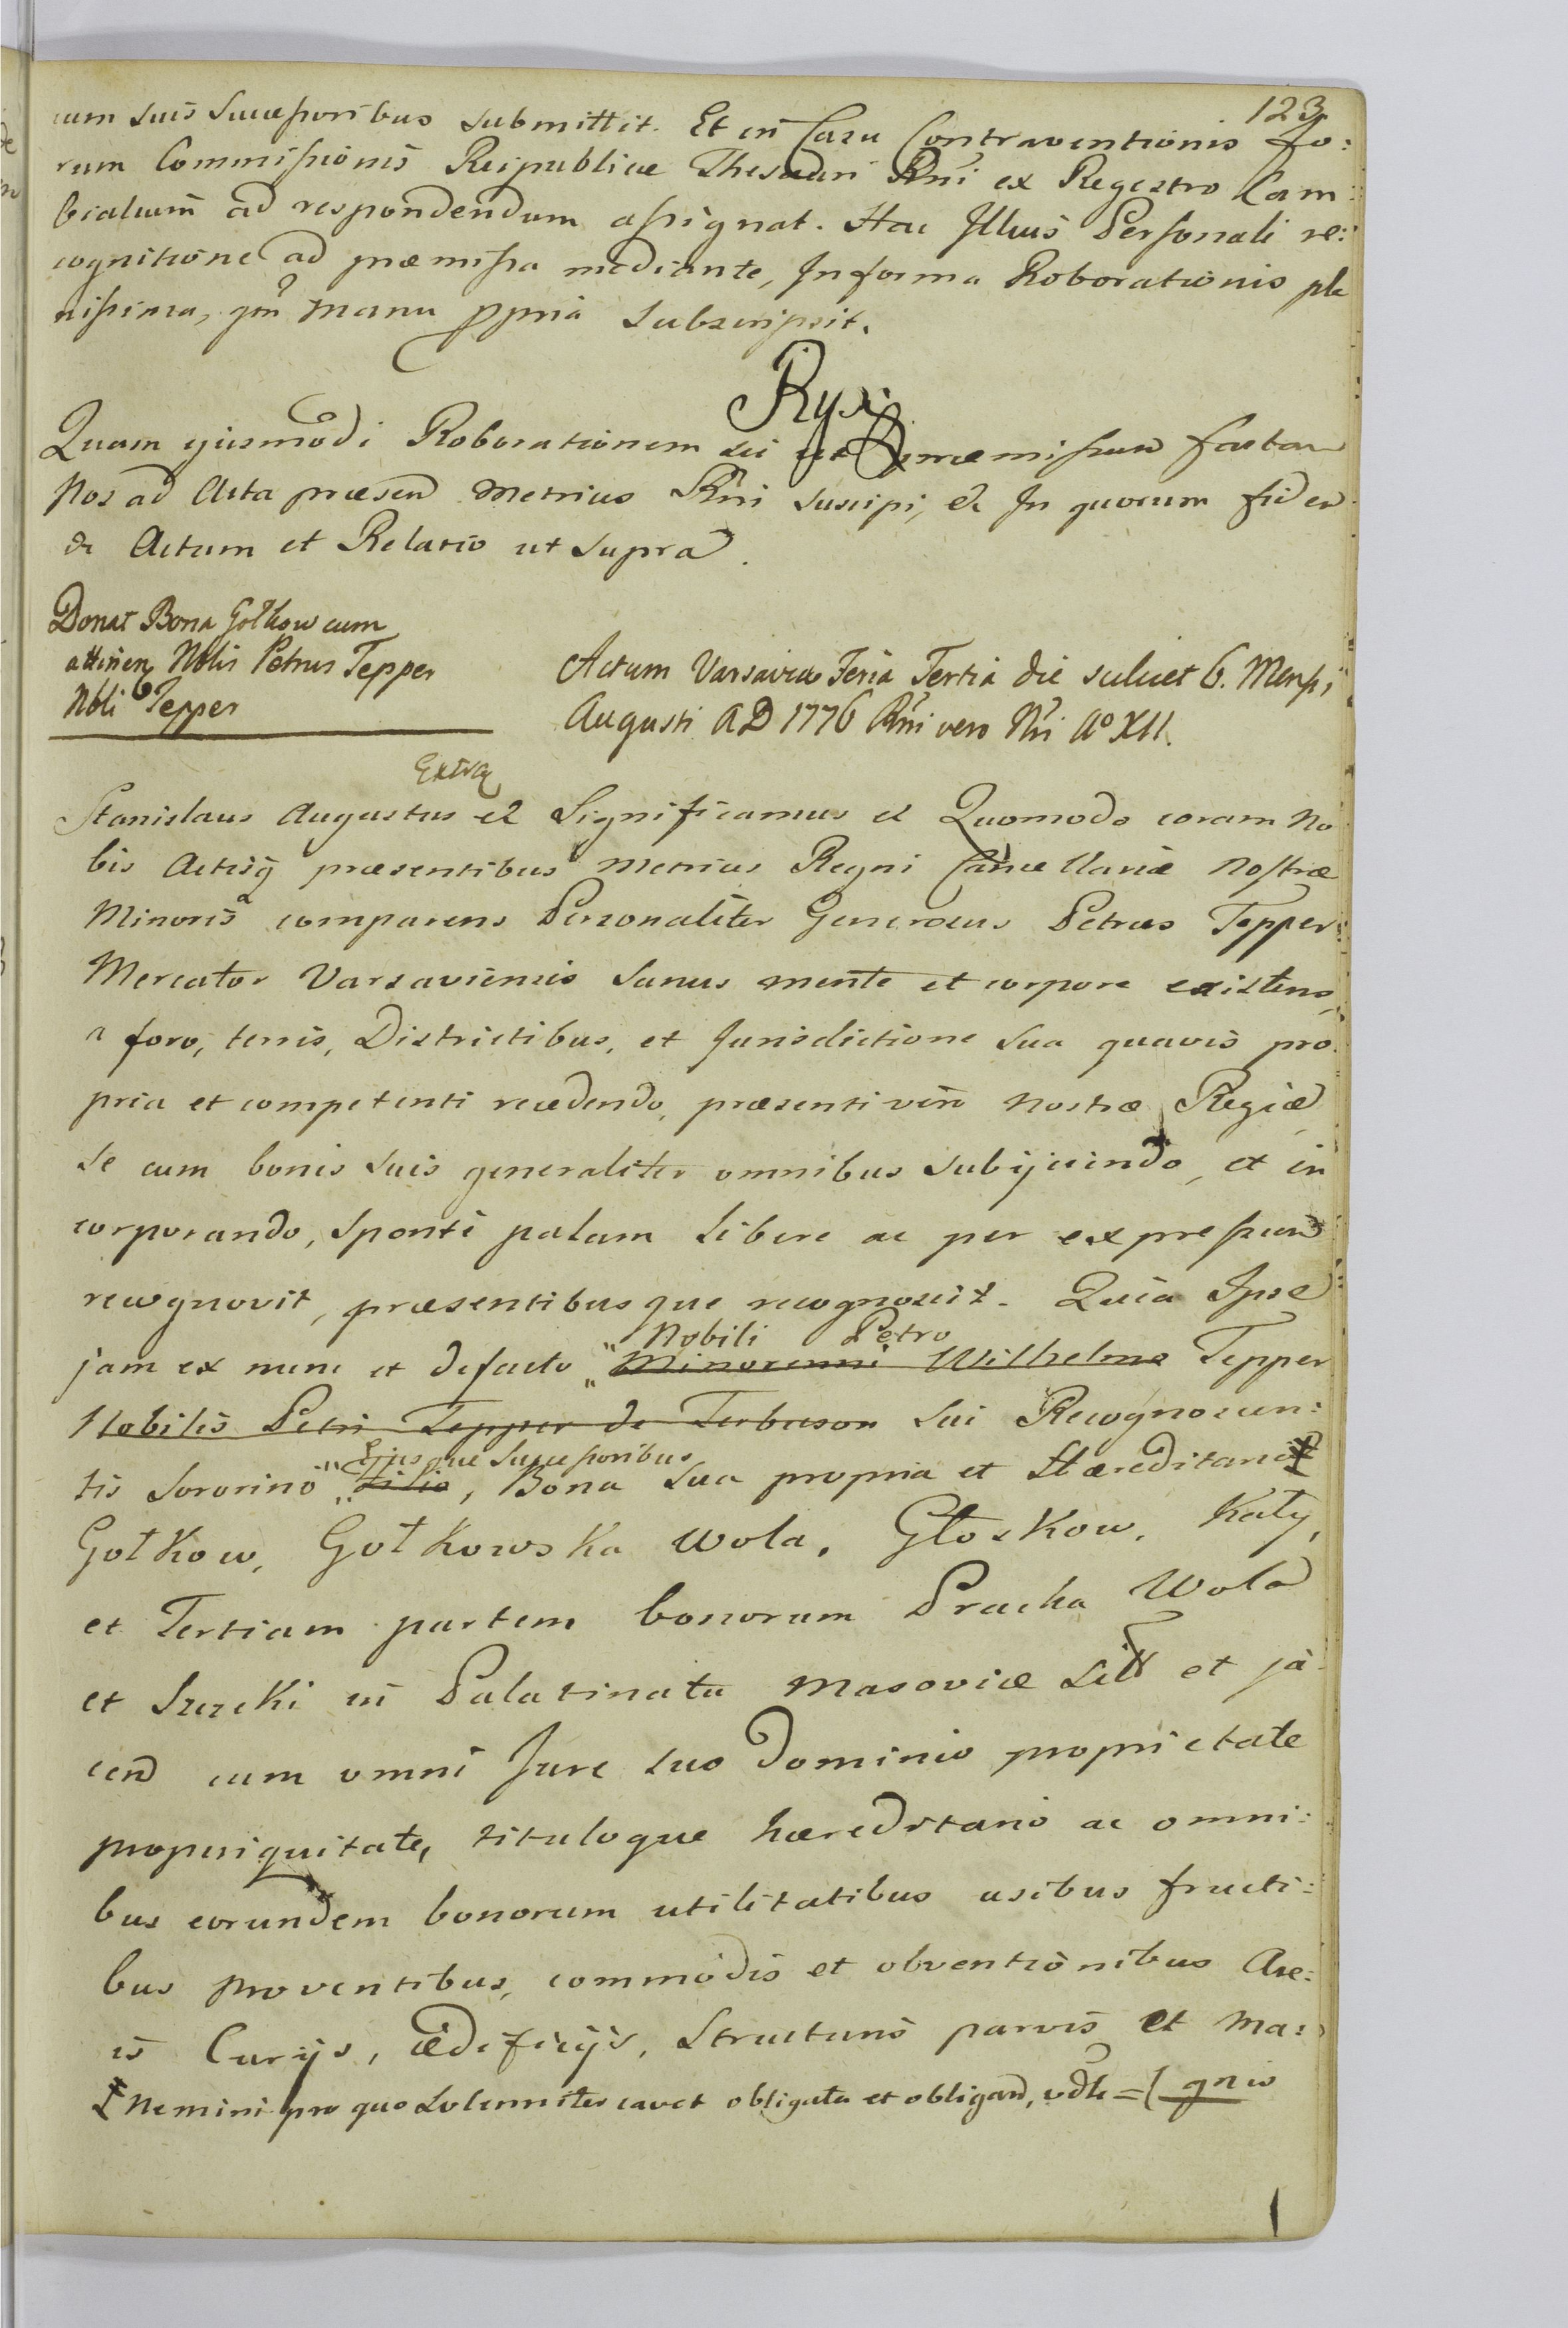 123
cum suis Successoribus submittit. Et in Casu Contraventionis Fo:
rum Commissionis Reipublicæ Thesauri Rñi ex Regestro Cam:
bialium ad respondendum assignat. Hac Illius Personali re:
cognitione ad præmissa mediante, In forma Roborationis ple
nissima, qm manu ppria subscripsit.
Ryx
Quam ejusmodi Roborationem sic ut præmissum factam
Nos ad Acta præsen Metrices Rñi suscipi, & In quorum fidem
& Actum et Relatio ut supra.
Donat Bona Gołkow cum
attinen Nblis Petrus Tepper
Nbli Tepper
Actum Varsaviæ Feria Tertia die scilicet 6. Mensis
Augusti AD 1776 Rñi vero Nri Aº XII.
Extra
Stanislaus Augustus & Significamus & Quomodo coram No
bis Actisq præsentibus Metrices Regni Cancellariæ Nostræ
Minoris comparens Personaliter Generosus Petrus Tepper
Mercator Varsaviensis sanus mente et corpore existens,
a foro, terris, Districtibus, et Jurisdictione sua quavis pro
pria et competenti recedendo, præsenti vero Nostræ Regiæ
se cum bonis suis generaliter omnibus subijciendo, et in
corporando, sponte palam libere ac per expressum
recognovit, præsentibusque recognoscit. Quia Ipse
Nobili Petro
jam ex nunc et defacto Minorenni Wilhelmo Tepper
Nobilis Petri Tepper de Ferguson sui Recognoscen:
Ejusque Successoribus
tis Sororino filio, Bona sua propria et Hæreditaria
Gołkow, Gołkowska Wola, Głoskow, Kąty,
et Tertiam partem bonorum Pracka Wola
et Szczeki in Palatinatu Masoviæ sitt et ja
cen cum omni Jure suo Dominio proprietate
propinquitate, tituloque hæreditario ac omni:
bus eorundem bonorum utilitatibus usibus fructi:
bus proventibus, commodis et obventionibus Are:
is Curijs, ædificijs, Structuris parvis et ma:
Nemini pro quo solenniter cavet obligata et obligand, =( gnis